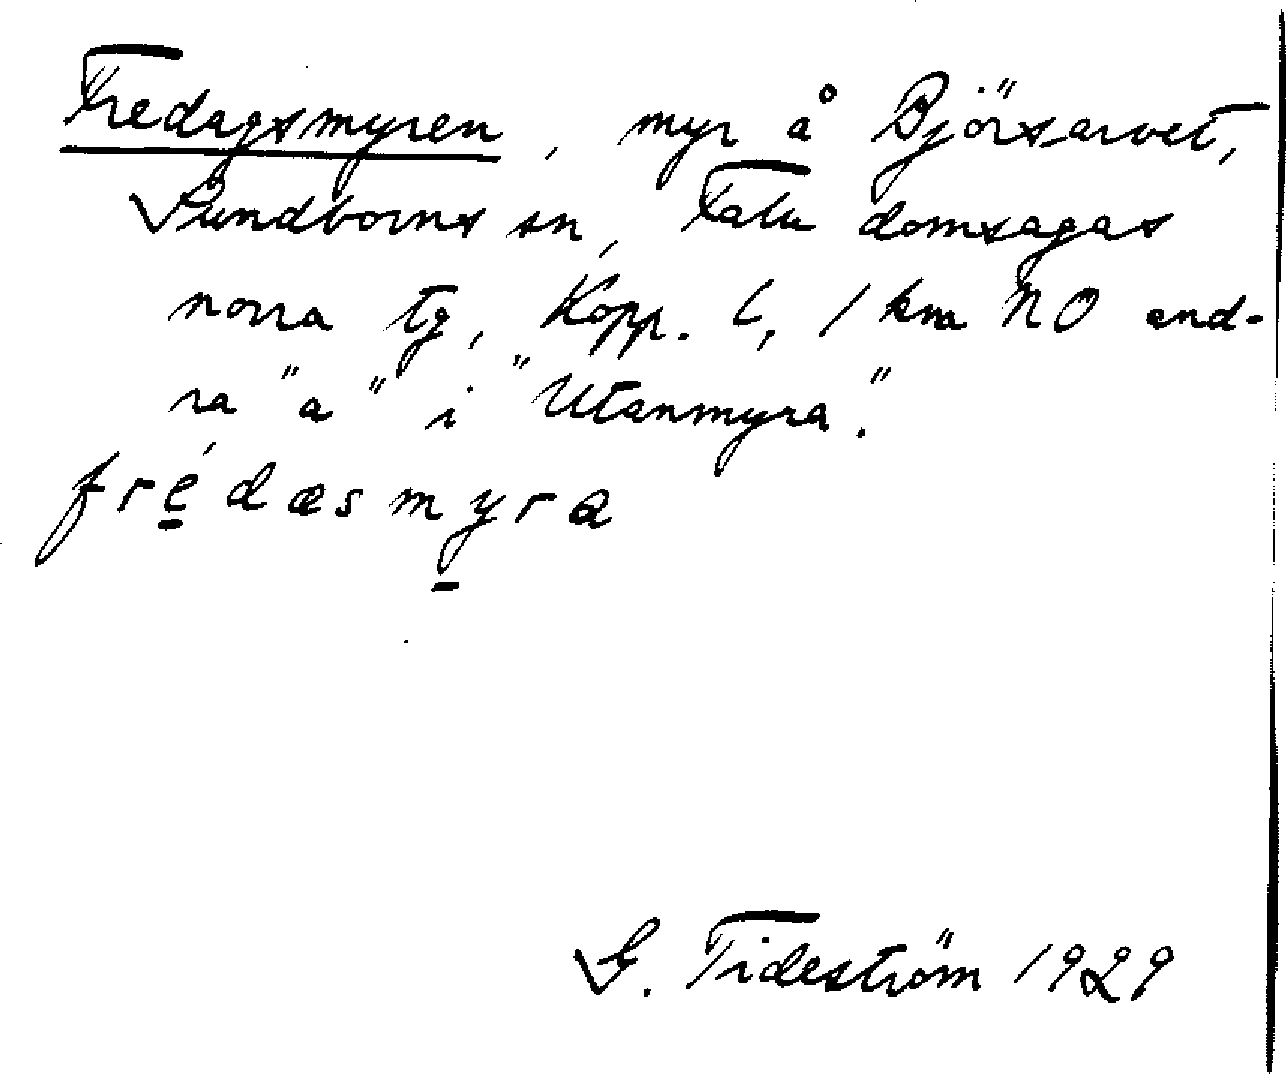 Fredagsmyren, myr å Björsarvet,
Sundborns sn, Falu domsagas
norra tg, Kopp. l, 1 km NO and-
ra "a" i "Utanmyra".
frédæsmyra
G. Tideström 1929